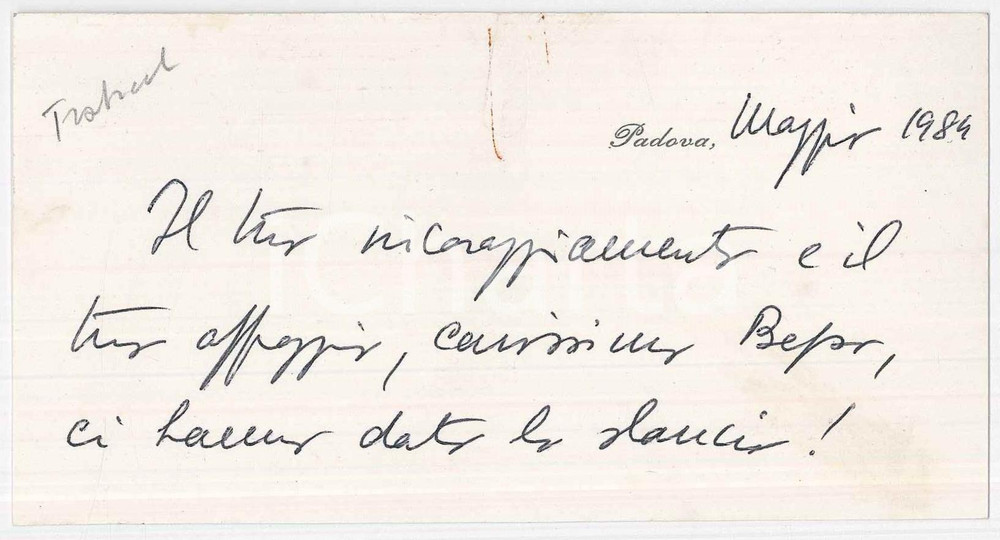 Padova, Maggio 1984
Il tuo incoraggiamento e il
tuo appoggio, carissimo Bepo,
ci hanno dato lo slancio!